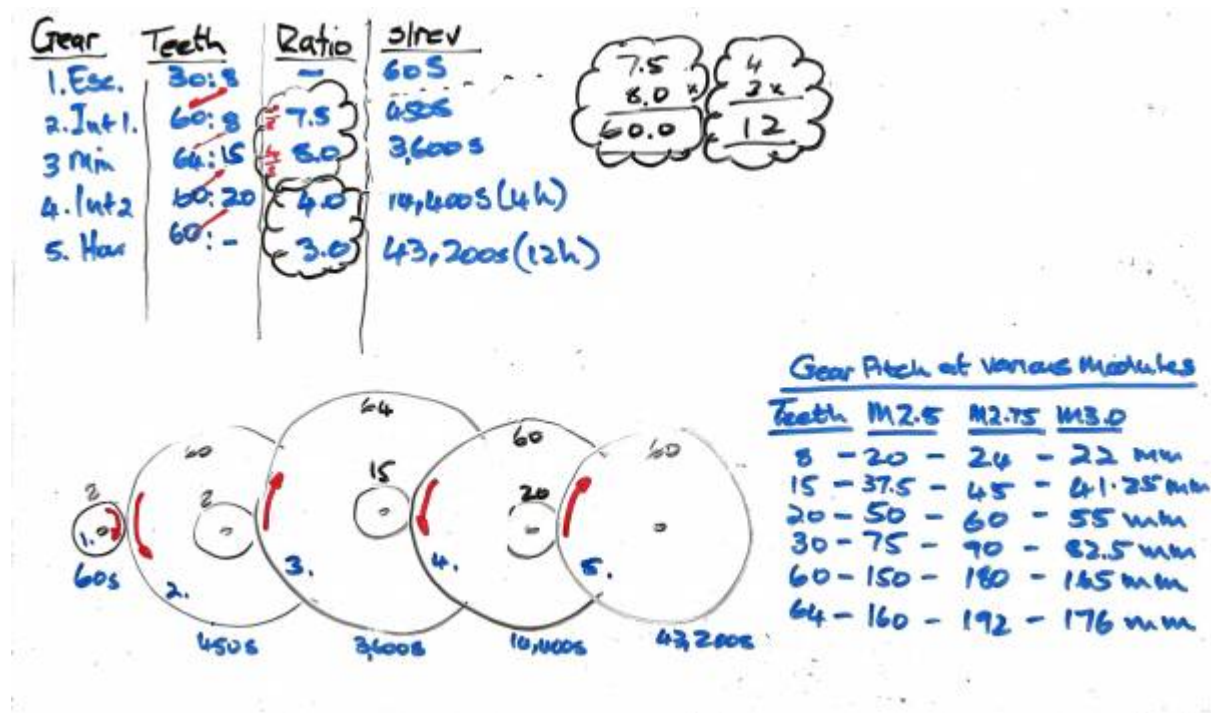 Gear Teeth Ratio s/rev
1. Esc. 30:8 — 60s
2. Int 1. 60:8 7.5 450s
3 Min 64:15 8.0 3,600s
4. Int 2 60:20 4.0 14,400s (4h)
5. Hour 60:- 3.0 43,200s (12h)
7.5
8.0 x
60.0
4
3 x
12
60 64 60 60
15 20
1. 2. 3. 4. 5.
60s 450s 3,600s 14,400s 43,200s
Gear Pitch at various Modules
Teeth M2.5 M2.75 M3.0
8 - 20 - 24 - 22 mm
15 - 37.5 - 45 - 41.25 mm
20 - 50 - 60 - 55 mm
30 - 75 - 90 - 82.5 mm
60 - 150 - 180 - 165 mm
64 - 160 - 192 - 176 mm